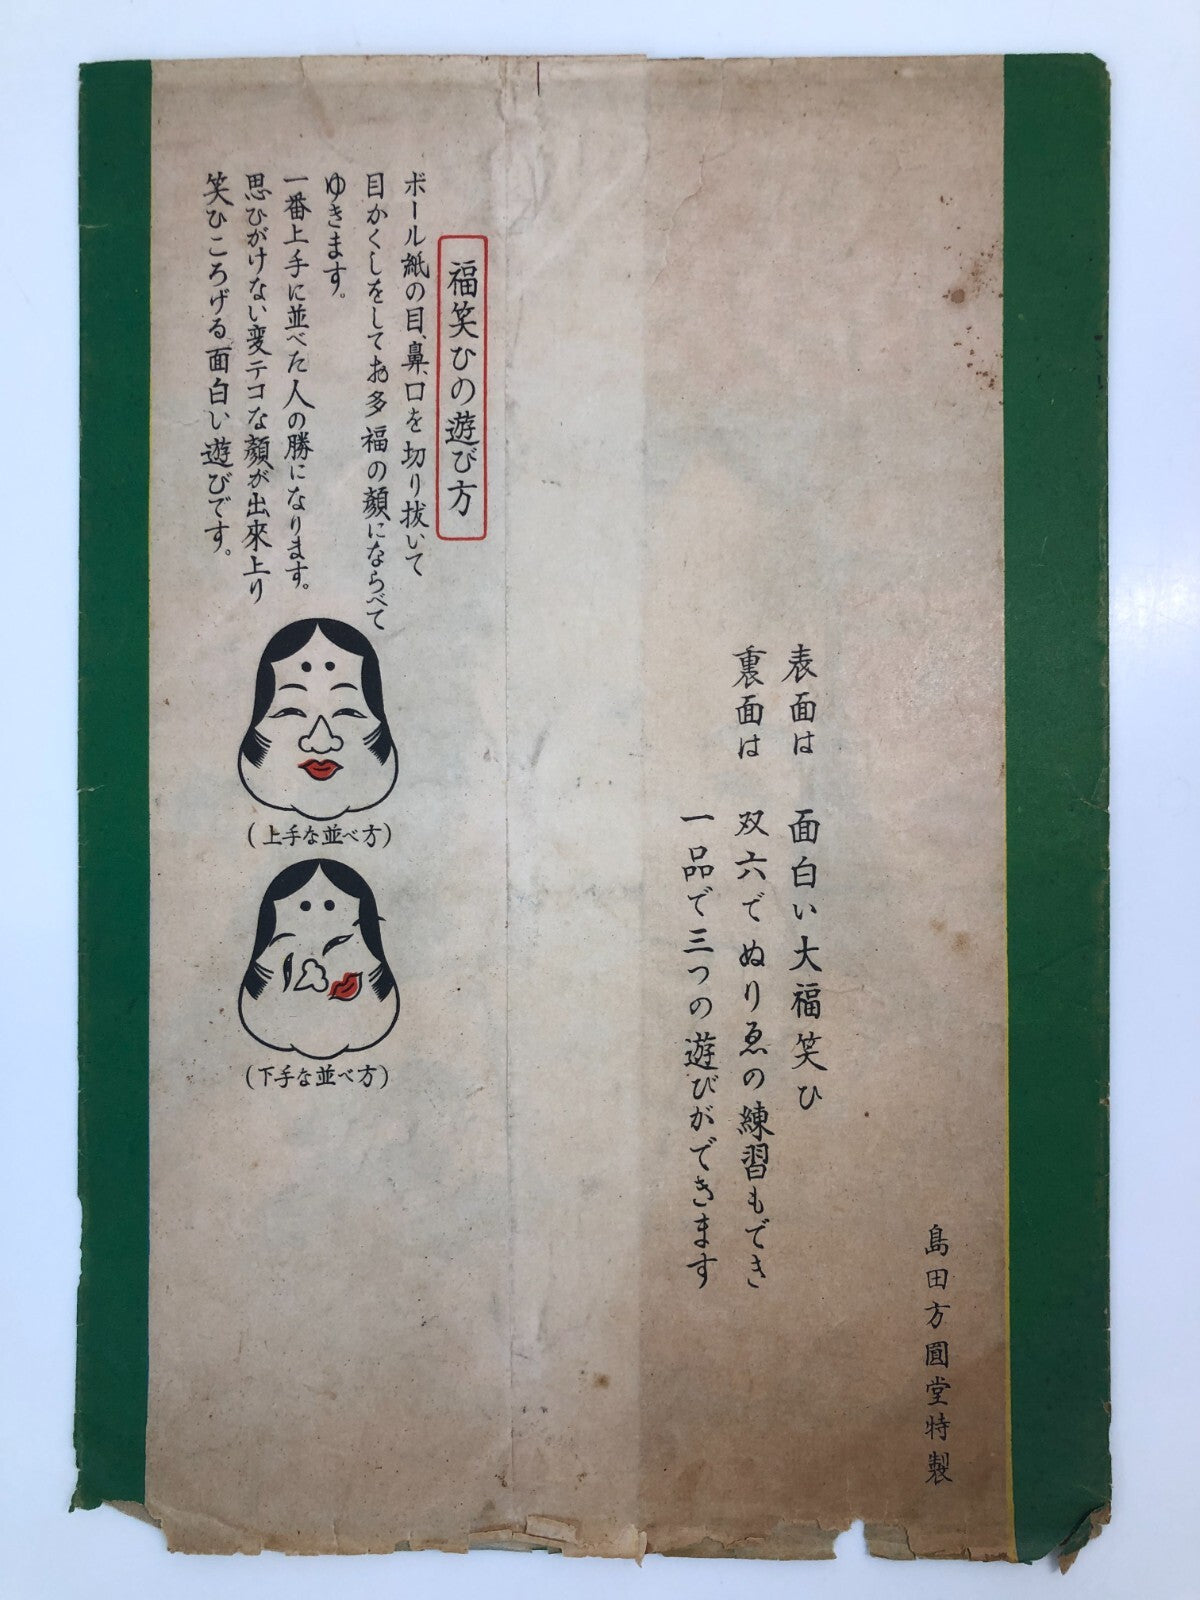 島田方圓堂特製
表面は 面白い大福笑ひ
裏面は 双六でぬりゑの練習もでき
一品で三つの遊びができます
福笑ひの遊び方
ボール紙の目、鼻、口を切り抜いて
目かくしをしてお多福の顔にならべて
ゆきます。
一番上手に並べた人の勝になります。
思ひがけない変テコな顔が出來上り
笑ひころげる面白い遊びです。
(上手な並べ方)
(下手な並べ方)